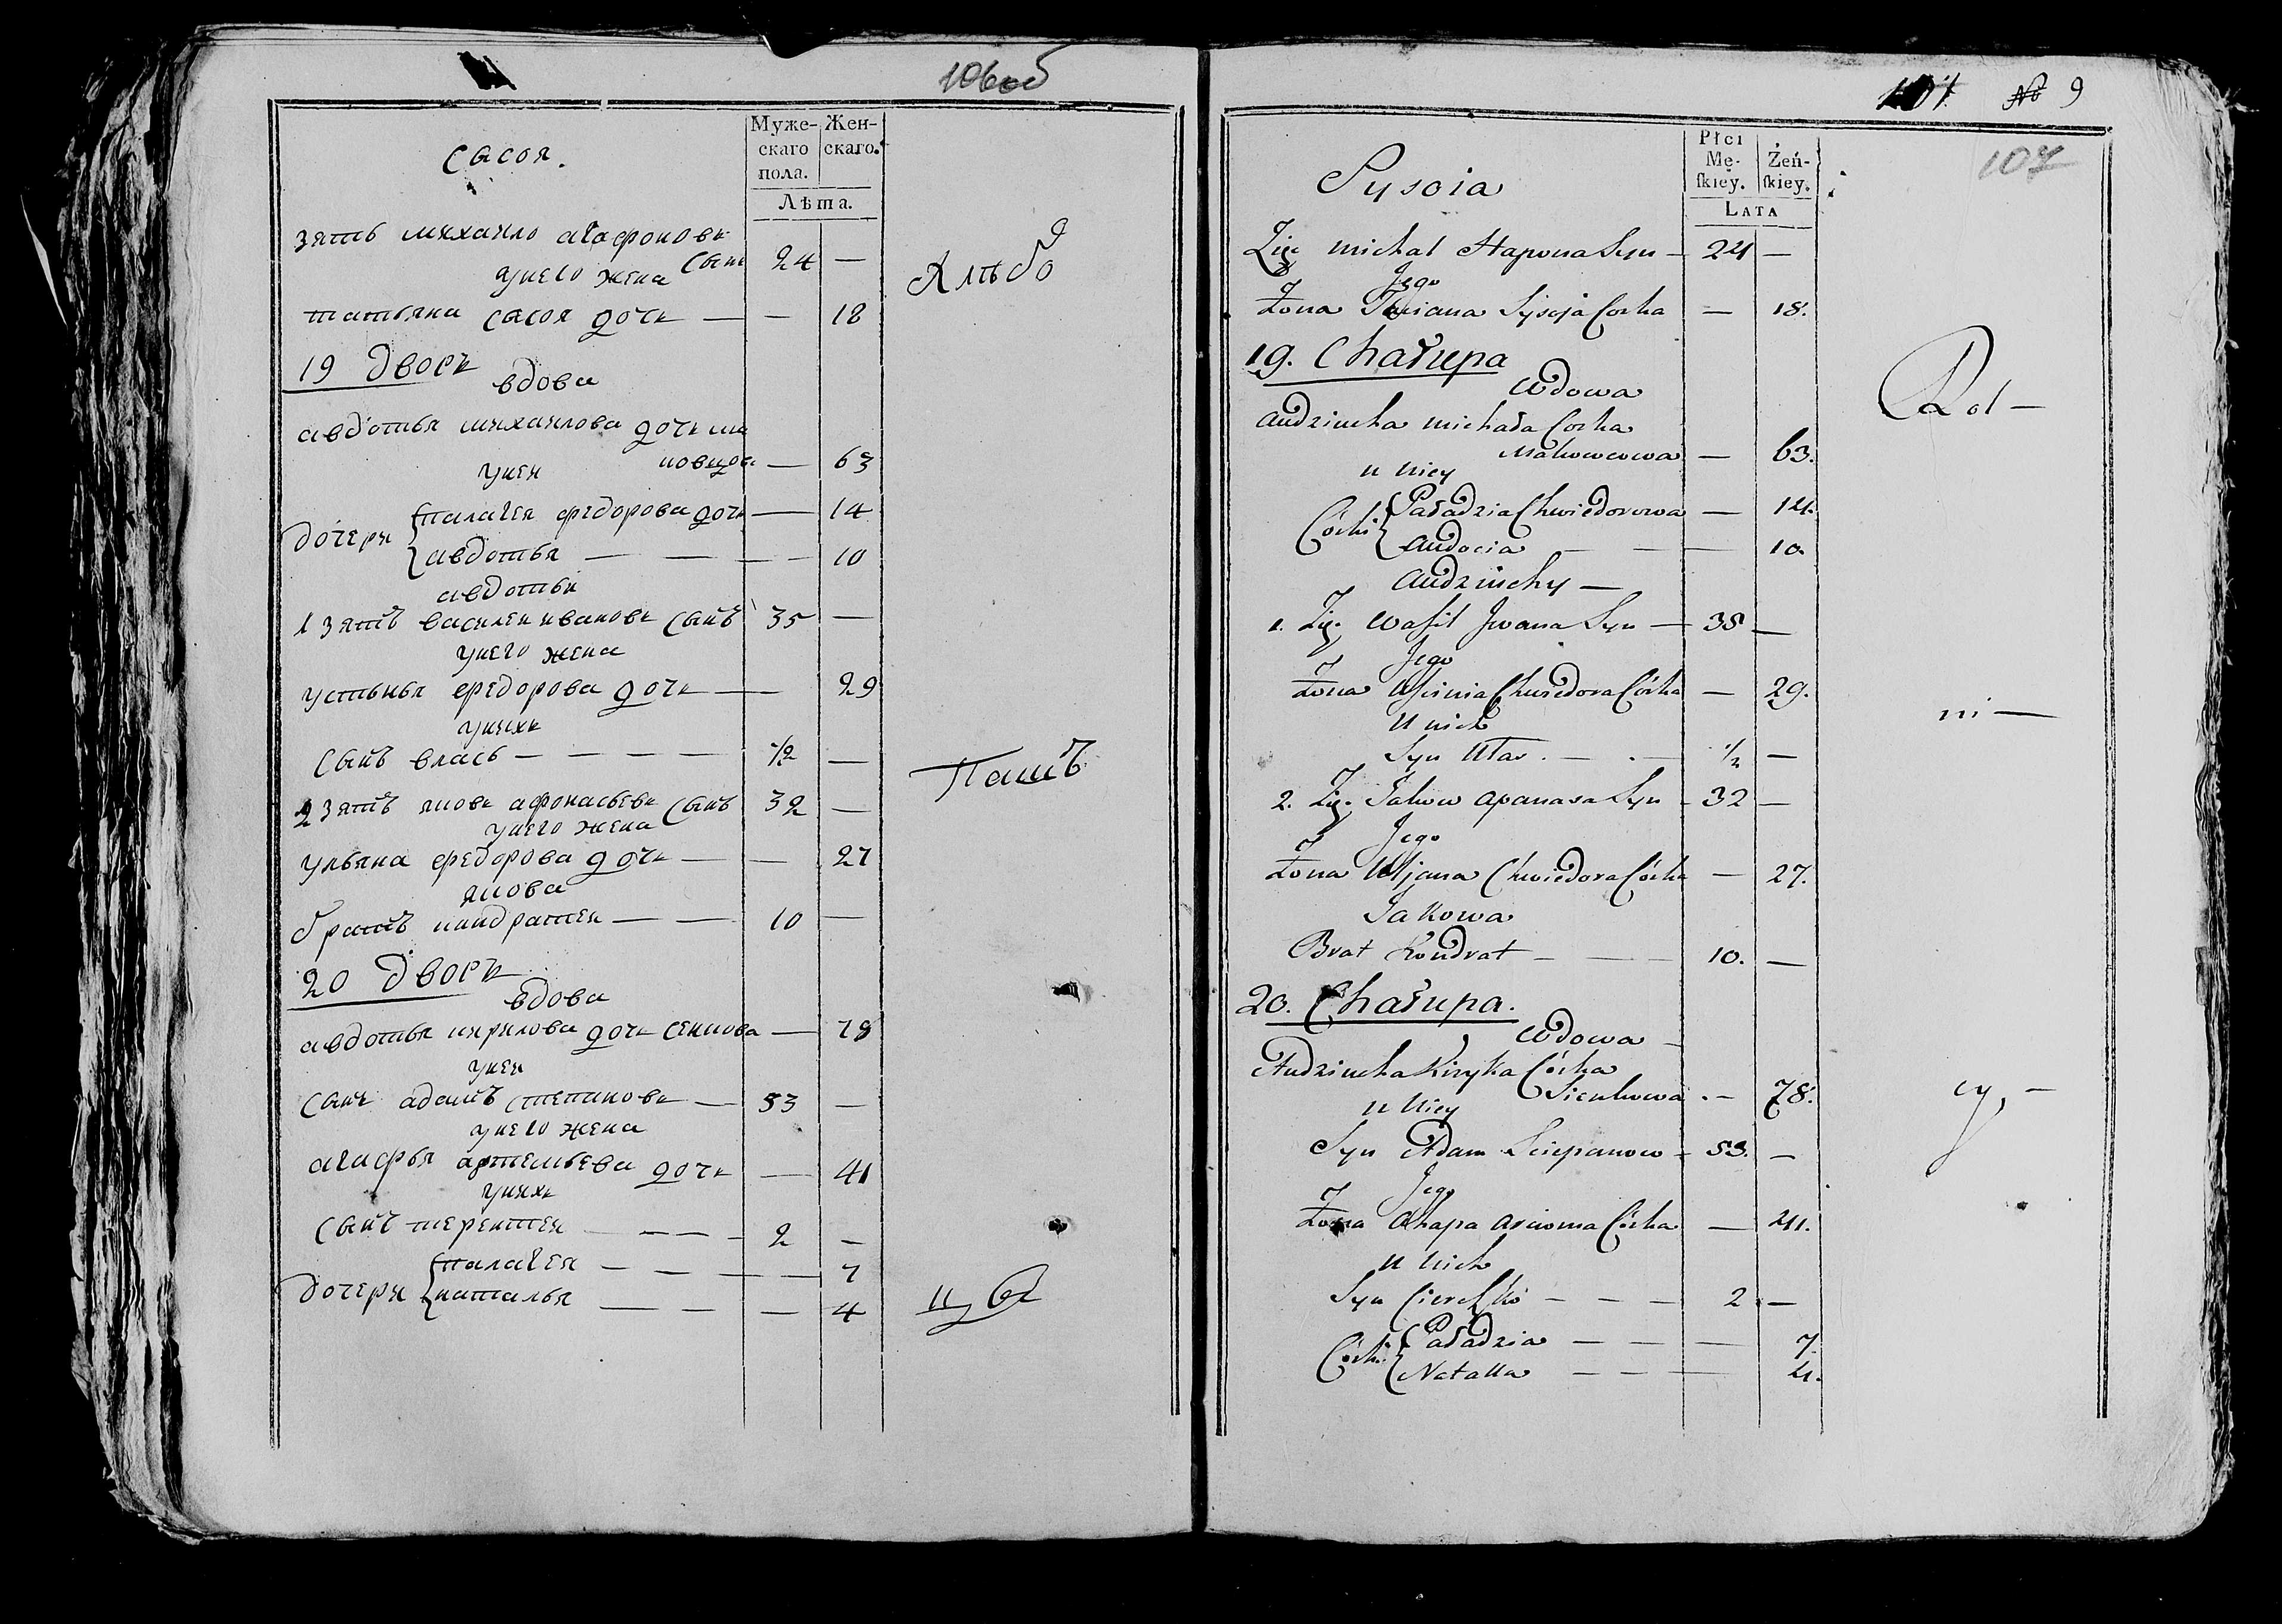 106об
Муже- Жен-
скаго скаго.
пола.
Лѣта.
Сысоя.
зять михайло агафоновъ
сынъ 24 —
унего жена
татьяна сысоя дочь — — 18
19 дворъ
вдова
авдотья михайлова дочь
— 63
унея
дочери палагея федорова дочь — 14
авдотья — — — — 10
авдотьи
1 зять василеи ивановъ сынъ 35 —
унего жена
устинья федорова дочь — — 29
унихъ
сынъ власъ — — — — 1/2 —
2 зять яковъ афонасьевъ сынъ 32 —
унего жена
ульяна федорова дочь — — 27
якова
братъ кондратеи — — 10 —
20 дворъ
вдова
авдотья кирилова дочь сенкова — 78
унея
сынъ адамъ степановъ — 53 —
унего жена
агафья артемьева дочь — 41
унихъ
сынъ терентеи — — — 2 —
дочери палагея — — — — 7
наталья — — — 4
107 № 9
107
Płci
Mę- Żeń-
ſkiey. ſkiey.
LATA
Sysoia
Zięć michał Syn — 24 —
Jego
żona Taciana Sysoja Corka — 18.
19. Chałupa
Wdowa
Audziucha michała Corka
— 63.
u niey
Córki Paładzia Chwiedorowa — 14.
Audocia — — — 10.
Audziuchy —
1. Zięć Wasil Jwana Syn — 35 —
Jego
żona Uscinia Chwiedora Córka — 29.
u nich
Syn Ułas . — . — 1/2 —
2. Zięć Jakow apanasa Syn — 32 —
Jego
żona Uljana Chwiedora Córka — 27.
Jakowa
Brat Kondrat — — — 10. —
20. Chałupa.
Wdowa —
Audziucha Kiryka Córka
Sienkowa . — 78.
u niey
Syn Adam Sciepanow — 53. —
Jego
żona Ahapa Arcioma Córka — 41.
u nich
Syn Ciereszko — — — 2 —
Córki Paładzia — — — 7.
Natalla — — — 4.